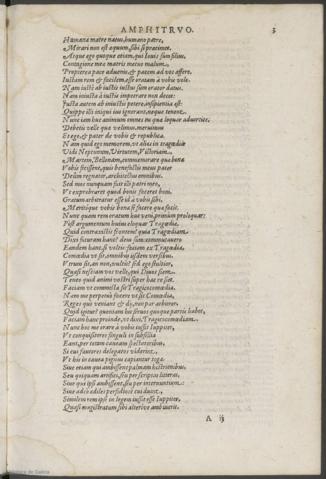 AMPHITRVO. 3
Humana matre natus, humano patre,
Mirari non est aequum, sibi si praetimet.
Atque ego quoque etiam, qui Iouis sum filius,
Contagione mei matris metuo malum.
Propterea pace aduenio, & pacem ad vos affero.
Iustam rem & facilem, esse oratam à vobis volo.
Nam iusti ab iustis iustus sum orator datus.
Nam iniusta à iustis impetrare non decet:
Iusta autem ab iniustis petere, insipientia est:
Quippe illi iniqui ius ignorant, neque tenent.
Nunc iam huc animum omnes ea qua loquar aduertite.
Debetis velle quae velimus. meruimus
Et ego, & pater de vobis & republica.
Nam quid ego memorem, vt alios in tragœdiis
Vidi Neptunum, Virtutem, Victoriam,
Martem, Bellonam, commemorare quae bona
Vobis fecissent, queis benefactis meus pater
Deûm regnator, architectus omnibus.
Sed mos nunquam fuit illi patri meo,
Vt exprobraret quod bonis faceret boni.
Gratum arbitratur esse id à vobis sibi,
Meritóque vobis bona se facere quae facit.
Nunc quam rem oratum huc veni, primùm proloquar:
Pòst argumentum huius eloquar Tragœdiae.
Quid contraxistis frontem? quia Tragœdiam
Dixi futuram hanc? deus sum: commutauero
Eandem hanc, si vultis: faciam ex Tragœdia,
Comœdia vt sit, omnibus iisdem versibus.
Vtrum sit, an non, vultis? sed ego stultior,
Quasi nesciam vos velle, qui Diuus siem.
Teneo quid animi vostri super hac re siet.
Faciam vt commista sit Tragicocomœdia.
Nam me perpetuò facere vt sit Comœdia,
Reges quò veniant & dij, non par arbitror.
Quid igitur? quoniam hic seruos quoque parteis habet,
Faciam hanc proinde, vt dixi, Tragicocomœdiam.
Nunc hoc me orare à vobis iussit Iuppiter,
Vt conquisitores singuli in subsellia
Eant, per totam caueam spectatoribus,
Si cui fautores delegatos viderint,
Vt his in cauea pignus capiantur toga.
Siue etiam qui ambissent palmam histrionibus,
Seu quoiquam artifici, seu per scriptas litteras,
Siue qui ipsi ambissent, seu per internuntium:
Siue adeò aediles perfidiosè cui duint,
Similem rem ipsi in legem iussit esse Iuppiter,
Quasi magistratum sibi alteriue ambiuerit.
A iij